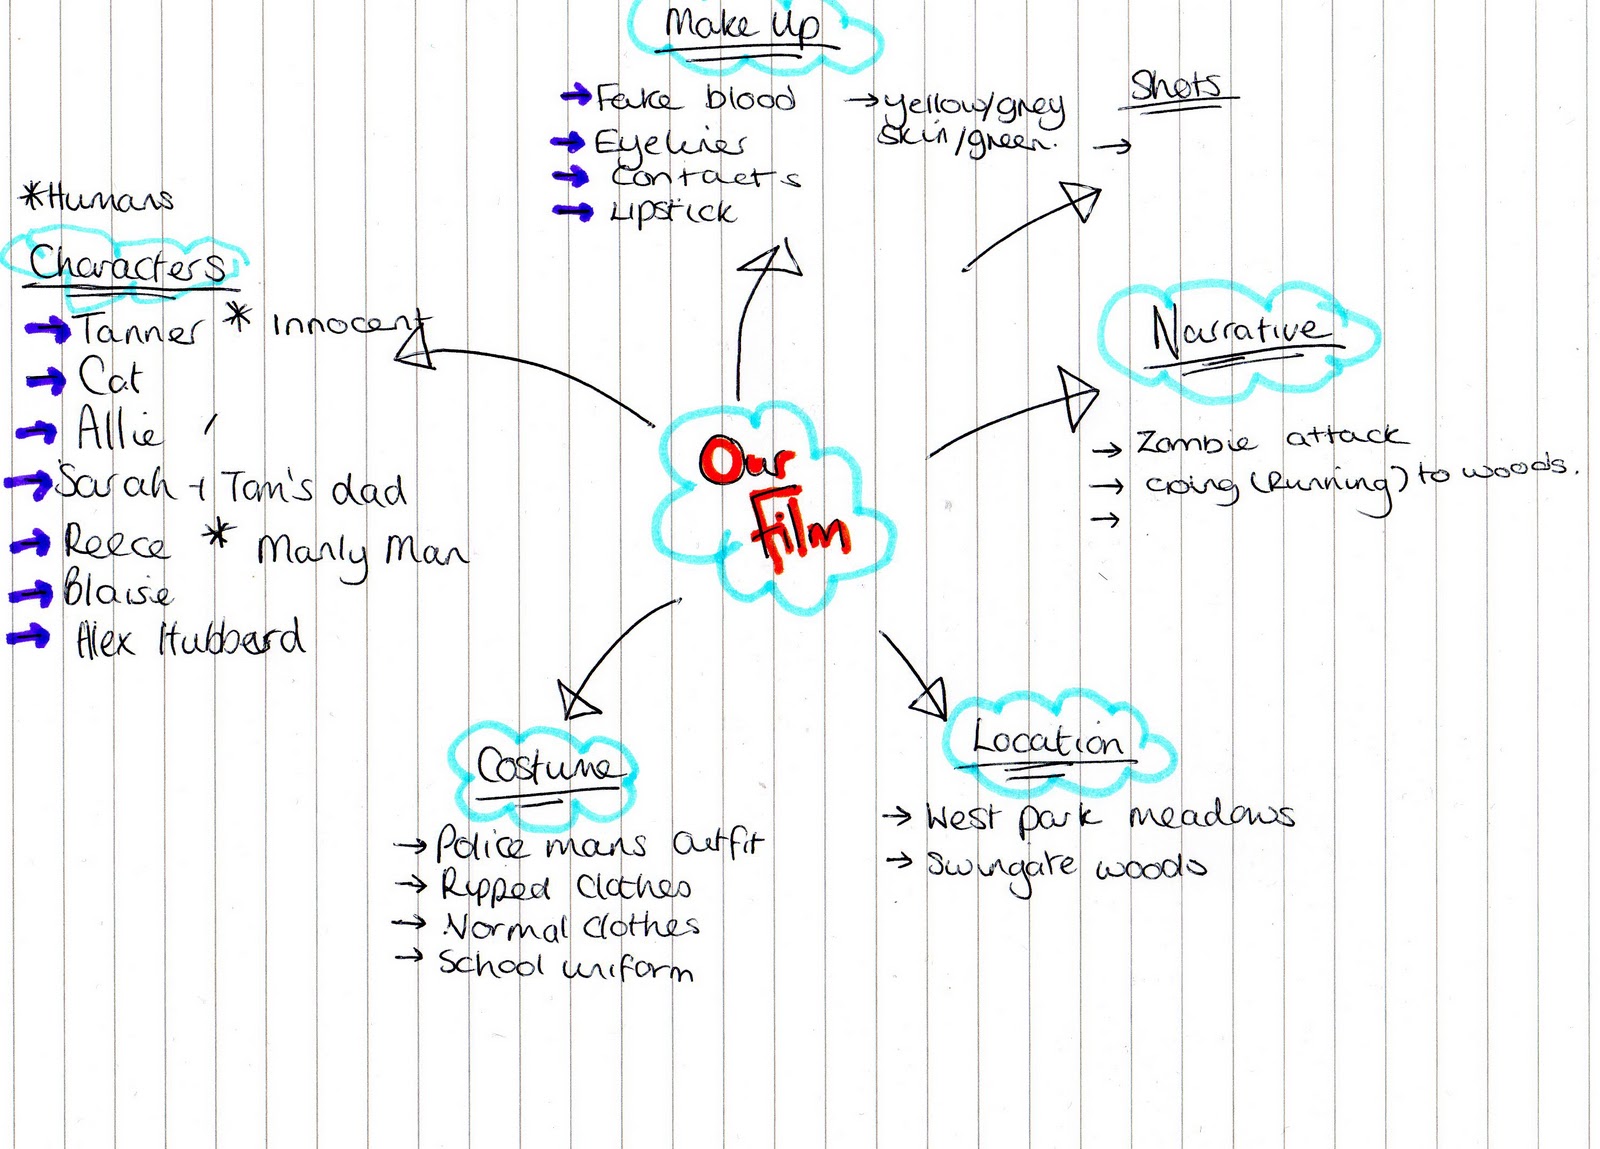 Make Up
→ Fake blood
→ Eyeliner
→ Contacts
→ Lipstick
→ yellow/grey
skin/green.
Shots
→
*Humans
Characters
→ Tanner * innocent
→ Cat
→ Allie
→ Sarah + Tom's dad
→ Reece * Manly Man
→ Blaise
→ Alex Hubbard
Our
Film
Narrative
→ Zombie attack
→ Going (Running) to woods.
→
Costume
→ Police mans outfit
→ Ripped clothes
→ Normal clothes
→ School uniform
Location
→ West park meadows
→ Swingate woods